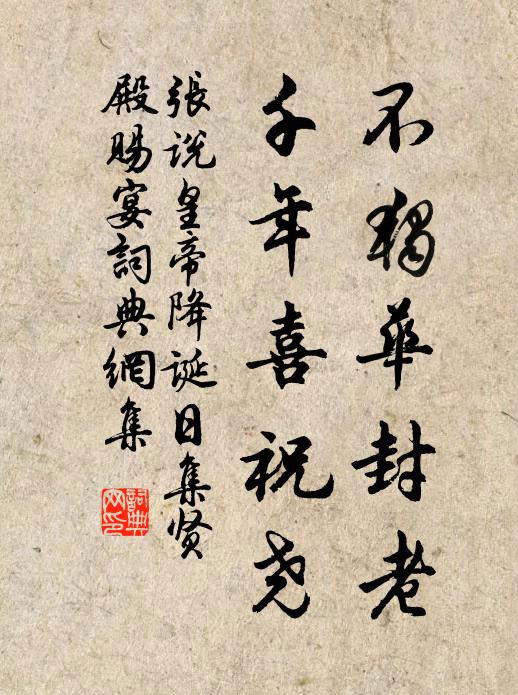 不獨華封老
千年喜祝尧
張說皇帝降誕日集贤
殿賜宴詞典網集
詞典
网印